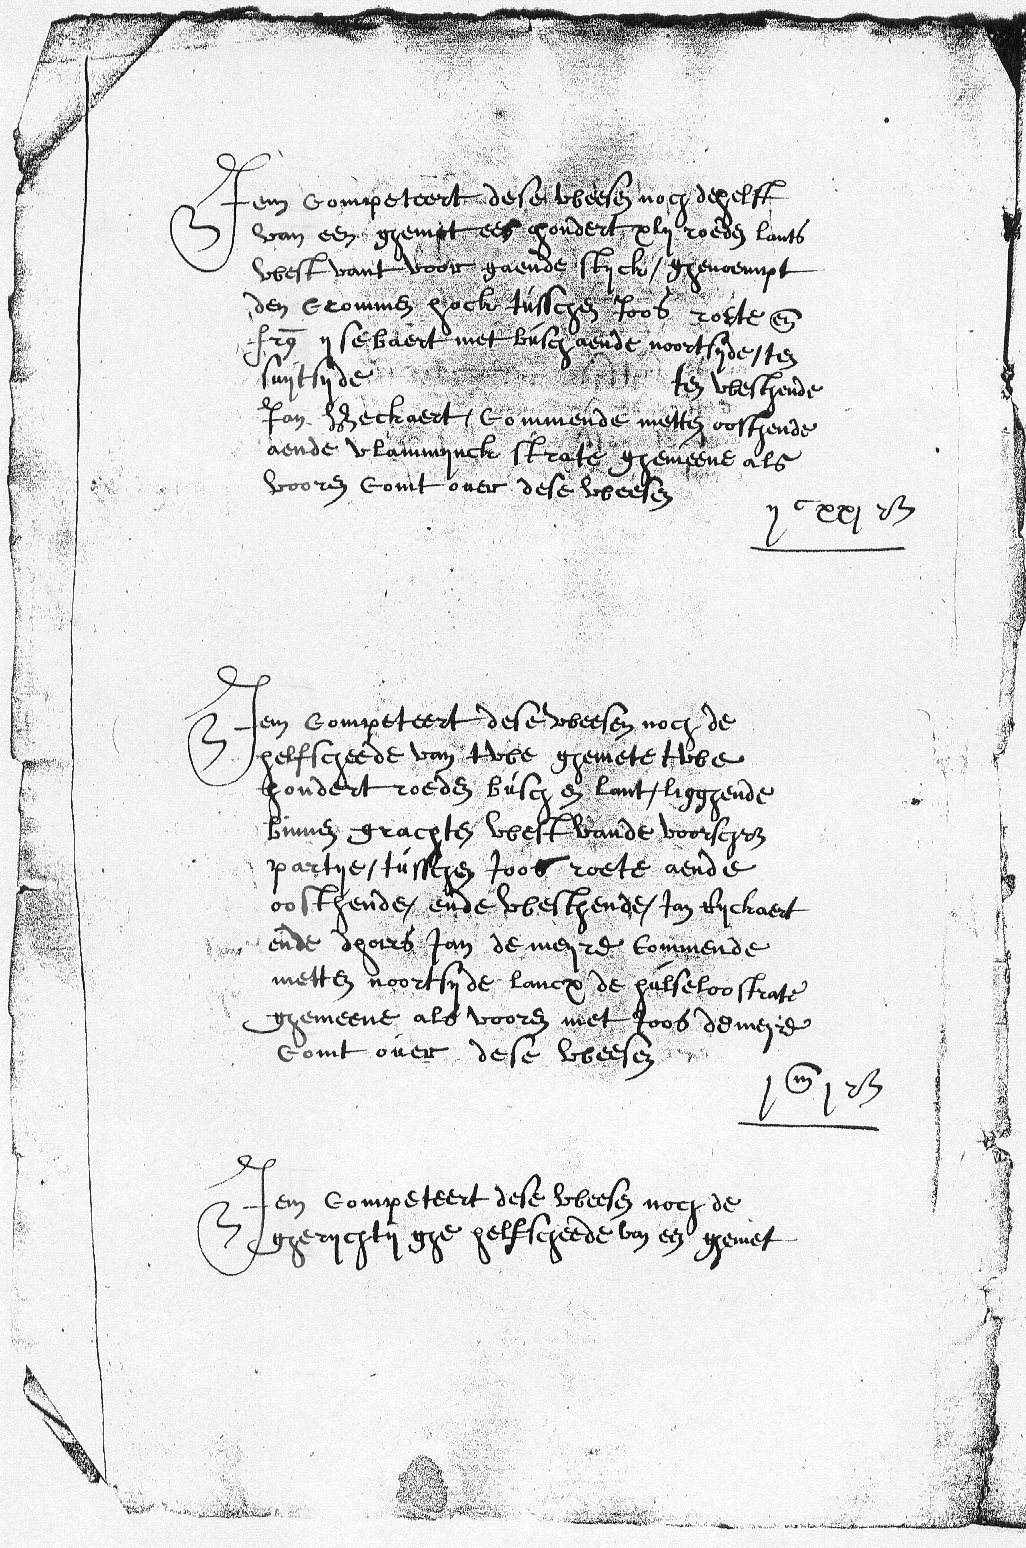 Item competeert dese weesen noch dhelft
van een ghemet een hondert xlij roeden lants
west vant voor gaende stijck / ghenoempt
den crommen hock tusschen Joos roete en
frans ysebaert met busch aende noortsijde / ten
suijtsijde ten westhende
Jan Beckaert / commende metten oosthende
aende vlaminck strate ghemeene als
vooren comt over dese weesen
ijc xxj R
Item competeert dese weesen noch de
helfscheede van twee ghemete twee
hondert roeden busch en lant / ligghende
binnen grachten west vande voorschr
partije / tusschen Joos roete aende
oosthende / ende westhende / Jan Ryckaert
ende dhoirs Jan de meyre commende
metten noortsijde lancx de hulseloostrate
ghemeene als vooren met Joos de meyre
comt over dese weesen
j m j R
Item competeert dese weesen noch de
gherychtijghe helfscheede van een ghemet